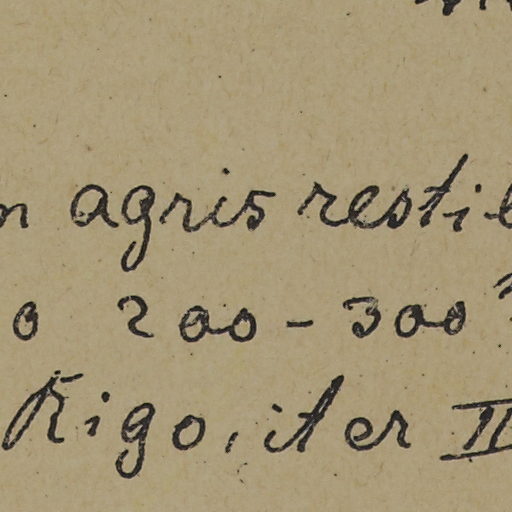 n agris resti
o 200-300
Rigo, iter II